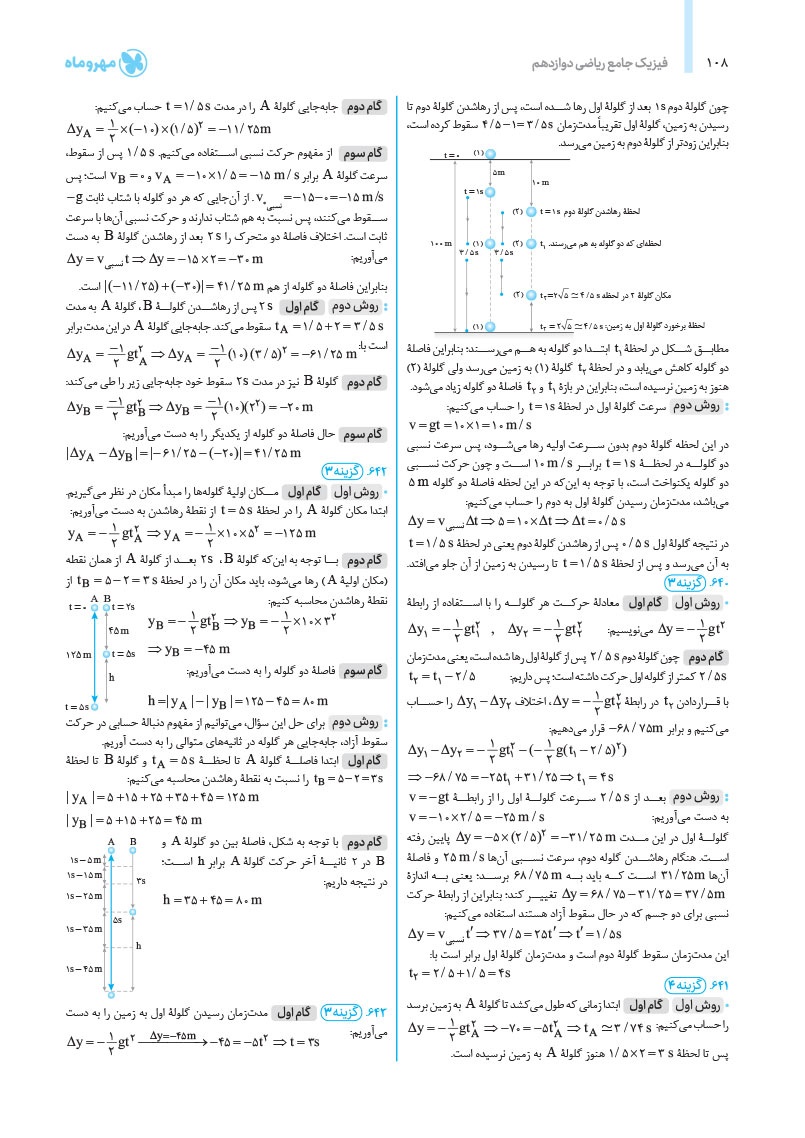 ۱۰۸
فیزیک جامع ریاضی دوازدهم
مهروماه
چون گلولهٔ دوم ۱s بعد از گلولهٔ اول رها شده است، پس از رهاشدن گلولهٔ دوم تا
رسیدن به زمین، گلولهٔ اول تقریباً مدت‌زمان ۴/۵−۱=۳/۵s سقوط کرده است،
بنابراین زودتر از گلولهٔ دوم به زمین می‌رسد.
t=۰ (۱)
۵m
۱۰m
t=۱s
(۲) لحظهٔ رهاشدن گلولهٔ دوم t=۱s
۱۰۰m (۱) (۲) t₁ لحظه‌ای که دو گلوله به هم می‌رسند.
۳/۵s ۳/۵s
(۲) مکان گلولهٔ ۲ در لحظه t₂=۲√۵ ≃ ۴/۵s
(۱) لحظهٔ برخورد گلولهٔ اول به زمین: t₂=۲√۵ ≃ ۴/۵s
مطابق شکل در لحظهٔ t₁ ابتدا دو گلوله به هم می‌رسند؛ بنابراین فاصلهٔ
دو گلوله کاهش می‌یابد و در لحظهٔ t₂ گلولهٔ (۱) به زمین می‌رسد ولی گلولهٔ (۲)
هنوز به زمین نرسیده است، بنابراین در بازهٔ t₁ و t₂ فاصلهٔ دو گلوله زیاد می‌شود.
روش دوم سرعت گلولهٔ اول در لحظهٔ t=۱s را حساب می‌کنیم:
v = gt = ۱۰×۱ = ۱۰ m/s
در این لحظه گلولهٔ دوم بدون سرعت اولیه رها می‌شود، پس سرعت نسبی
دو گلوله در لحظهٔ t=۱s برابر ۱۰ m/s است و چون حرکت نسبی
دو گلوله یکنواخت است، با توجه به این‌که در این لحظه فاصلهٔ دو گلوله ۵ m
می‌باشد، مدت‌زمان رسیدن گلولهٔ اول به دوم را حساب می‌کنیم:
Δy = v نسبی Δt ⇒ ۵ = ۱۰×Δt ⇒ Δt = ۰/۵ s
در نتیجه گلولهٔ اول ۰/۵ s پس از رهاشدن گلولهٔ دوم یعنی در لحظهٔ t=۱/۵ s
به آن می‌رسد و پس از لحظهٔ t=۱/۵ s تا رسیدن به زمین از آن جلو می‌افتد.
۶۴۰. گزینهٔ ۳
روش اول گام اول معادلهٔ حرکت هر گلوله را با استفاده از رابطهٔ
Δy = −۱/۲ gt² می‌نویسیم: Δy₁ = −۱/۲ gt₁² , Δy₂ = −۱/۲ gt₂²
گام دوم چون گلولهٔ دوم ۲/۵ s پس از گلولهٔ اول رها شده است، یعنی مدت‌زمان
۲/۵ s کمتر از گلوله اول حرکت داشته است؛ پس داریم: t₂ = t₁ − ۲/۵
با قراردادن t₂ در رابطهٔ Δy = −۱/۲ gt₂²، اختلاف Δy₁ − Δy₂ را حساب
می‌کنیم و برابر −۶۸/۷۵m قرار می‌دهیم:
Δy₁ − Δy₂ = −۱/۲ gt₁² − (−۱/۲ g(t₁ − ۲/۵)²)
⇒ −۶۸/۷۵ = −۲۵t₁ + ۳۱/۲۵ ⇒ t₁ = ۴s
روش دوم بعد از ۲/۵ s سرعت گلولهٔ اول را از رابطهٔ v = −gt
به دست می‌آوریم: v = −۱۰×۲/۵ = −۲۵ m/s
گلولهٔ اول در این مدت Δy = −۵×(۲/۵)² = −۳۱/۲۵ m پایین رفته
است. هنگام رهاشدن گلوله دوم، سرعت نسبی آن‌ها ۲۵ m/s و فاصلهٔ
آن‌ها ۳۱/۲۵m است که باید به ۶۸/۷۵ m برسد؛ یعنی به اندازهٔ
Δy = ۶۸/۷۵ − ۳۱/۲۵ = ۳۷/۵m تغییر کند؛ بنابراین از رابطهٔ حرکت
نسبی برای دو جسم که در حال سقوط آزاد هستند استفاده می‌کنیم:
Δy = v نسبی t′ ⇒ ۳۷/۵ = ۲۵t′ ⇒ t′ = ۱/۵s
این مدت‌زمان سقوط گلولهٔ دوم است و مدت‌زمان گلولهٔ اول برابر است با:
t₂ = ۲/۵ + ۱/۵ = ۴s
۶۴۱. گزینهٔ ۴
روش اول گام اول ابتدا زمانی که طول می‌کشد تا گلولهٔ A به زمین برسد
را حساب می‌کنیم: Δy = −۱/۲ gt_A² ⇒ −۷۰ = −۵t_A² ⇒ t_A ≃ ۳/۷۴ s
پس تا لحظهٔ ۱/۵×۲ = ۳ s هنوز گلولهٔ A به زمین نرسیده است.
گام دوم جابه‌جایی گلولهٔ A را در مدت t = ۱/۵s حساب می‌کنیم:
Δy_A = ۱/۲ ×(−۱۰)×(۱/۵)² = −۱۱/۲۵m
گام سوم از مفهوم حرکت نسبی استفاده می‌کنیم. ۱/۵s پس از سقوط،
سرعت گلولهٔ A برابر v_A = −۱۰×۱/۵ = −۱۵ m/s و v_B = ۰ است؛ پس
v نسبی = −۱۵−۰ = −۱۵ m/s . از آن‌جایی که هر دو گلوله با شتاب ثابت −g
سقوط می‌کنند، پس نسبت به هم شتاب ندارند و حرکت نسبی آن‌ها با سرعت
ثابت است. اختلاف فاصلهٔ دو متحرک را ۲s بعد از رهاشدن گلولهٔ B به دست
می‌آوریم: Δy = v نسبی t ⇒ Δy = −۱۵×۲ = −۳۰ m
بنابراین فاصلهٔ دو گلوله از هم |(−۱۱/۲۵)+(−۳۰)| = ۴۱/۲۵ m است.
روش دوم گام اول ۲s پس از رهاشدن گلولهٔ B، گلولهٔ A به مدت
t_A = ۱/۵+۲ = ۳/۵ s سقوط می‌کند. جابه‌جایی گلولهٔ A در این مدت برابر
است با: Δy_A = −۱/۲ gt_A² ⇒ Δy_A = −۱/۲ (۱۰)(۳/۵)² = −۶۱/۲۵ m
گام دوم گلولهٔ B نیز در مدت ۲s سقوط خود جابه‌جایی زیر را طی می‌کند:
Δy_B = −۱/۲ gt_B² ⇒ Δy_B = −۱/۲ (۱۰)(۲²) = −۲۰ m
گام سوم حال فاصلهٔ دو گلوله از یکدیگر را به دست می‌آوریم:
|Δy_A − Δy_B| = |−۶۱/۲۵ − (−۲۰)| = ۴۱/۲۵ m
۶۴۲. گزینهٔ ۳
روش اول گام اول مکان اولیهٔ گلوله‌ها را مبدأ مکان در نظر می‌گیریم.
ابتدا مکان گلولهٔ A را در لحظهٔ t = ۵s از نقطهٔ رهاشدن به دست می‌آوریم:
y_A = −۱/۲ gt_A² ⇒ y_A = −۱/۲ ×۱۰×۵² = −۱۲۵ m
گام دوم با توجه به این‌که گلولهٔ B، ۲s بعد از گلولهٔ A از همان نقطه
(مکان اولیهٔ A) رها می‌شود، باید مکان آن را در لحظهٔ t_B = ۵−۲ = ۳s از
نقطهٔ رهاشدن محاسبه کنیم:
A B
t=۰ t=۲s
۴۵m
۱۲۵m t=۵s
h
t=۵s
y_B = −۱/۲ gt_B² ⇒ y_B = −۱/۲ ×۱۰×۳²
⇒ y_B = −۴۵ m
گام سوم فاصلهٔ دو گلوله را به دست می‌آوریم:
h = |y_A| − |y_B| = ۱۲۵ − ۴۵ = ۸۰ m
روش دوم برای حل این سؤال، می‌توانیم از مفهوم دنبالهٔ حسابی در حرکت
سقوط آزاد، جابه‌جایی هر گلوله در ثانیه‌های متوالی را به دست آوریم.
گام اول ابتدا فاصلهٔ گلولهٔ A تا لحظهٔ t_A = ۵s و گلولهٔ B تا لحظهٔ
t_B = ۵−۲ = ۳s را نسبت به نقطهٔ رهاشدن محاسبه می‌کنیم:
|y_A| = ۵+۱۵+۲۵+۳۵+۴۵ = ۱۲۵ m
|y_B| = ۵+۱۵+۲۵ = ۴۵ m
گام دوم با توجه به شکل، فاصلهٔ بین دو گلولهٔ A و
B در ۲ ثانیهٔ آخر حرکت گلولهٔ A برابر h است؛
در نتیجه داریم:
h = ۳۵ + ۴۵ = ۸۰ m
A B
۱s−۵m
۱s−۱۵m
۳s
۱s−۲۵m
۵s
۱s−۳۵m
h
۱s−۴۵m
۶۴۳. گزینهٔ ۳ گام اول مدت‌زمان رسیدن گلولهٔ اول به زمین را به دست
می‌آوریم: Δy = −۱/۲ gt² —Δy=−۴۵m→ −۴۵ = −۵t² ⇒ t = ۳s